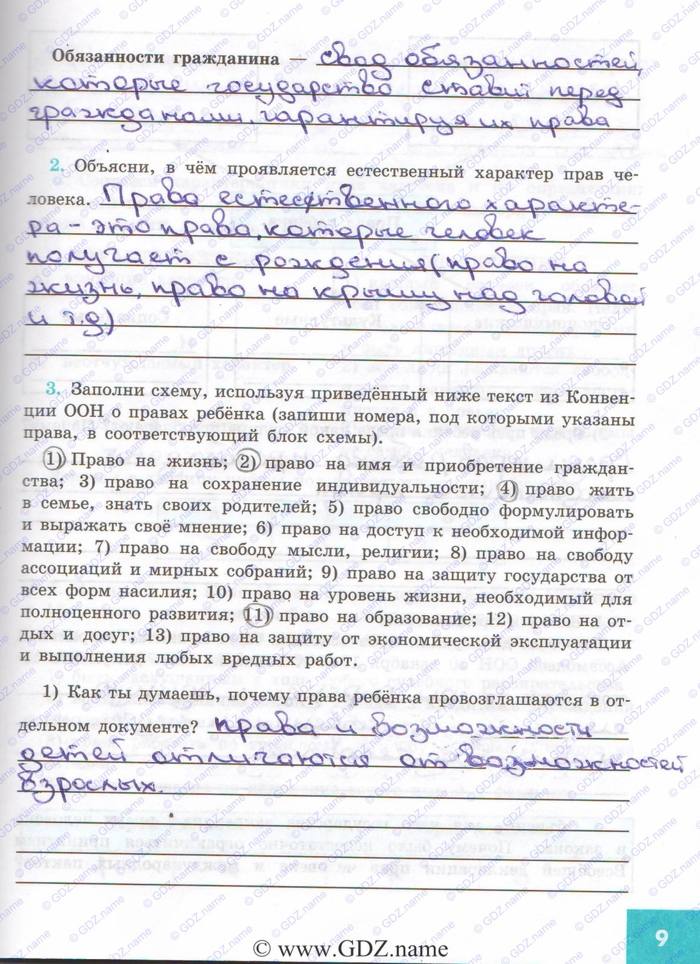 Обязанности гражданина — свод обязанностей,
которые государство ставит перед
гражданами, гарантируя их права
2. Объясни, в чём проявляется естественный характер прав че-
ловека. Права естественного характе-
ра - это права, которые человек
получает с рождения (право на
жизнь, право на крышу над головой
и т.д.)
3. Заполни схему, используя приведённый ниже текст из Конвен-
ции ООН о правах ребёнка (запиши номера, под которыми указаны
права, в соответствующий блок схемы).
1) Право на жизнь; 2) право на имя и приобретение граждан-
ства; 3) право на сохранение индивидуальности; 4) право жить
в семье, знать своих родителей; 5) право свободно формулировать
и выражать своё мнение; 6) право на доступ к необходимой инфор-
мации; 7) право на свободу мысли, религии; 8) право на свободу
ассоциаций и мирных собраний; 9) право на защиту государства от
всех форм насилия; 10) право на уровень жизни, необходимый для
полноценного развития; 11) право на образование; 12) право на от-
дых и досуг; 13) право на защиту от экономической эксплуатации
и выполнения любых вредных работ.
1) Как ты думаешь, почему права ребёнка провозглашаются в от-
дельном документе? права и возможности
детей отличаются от возможностей
взрослых.
9
© www.GDZ.name